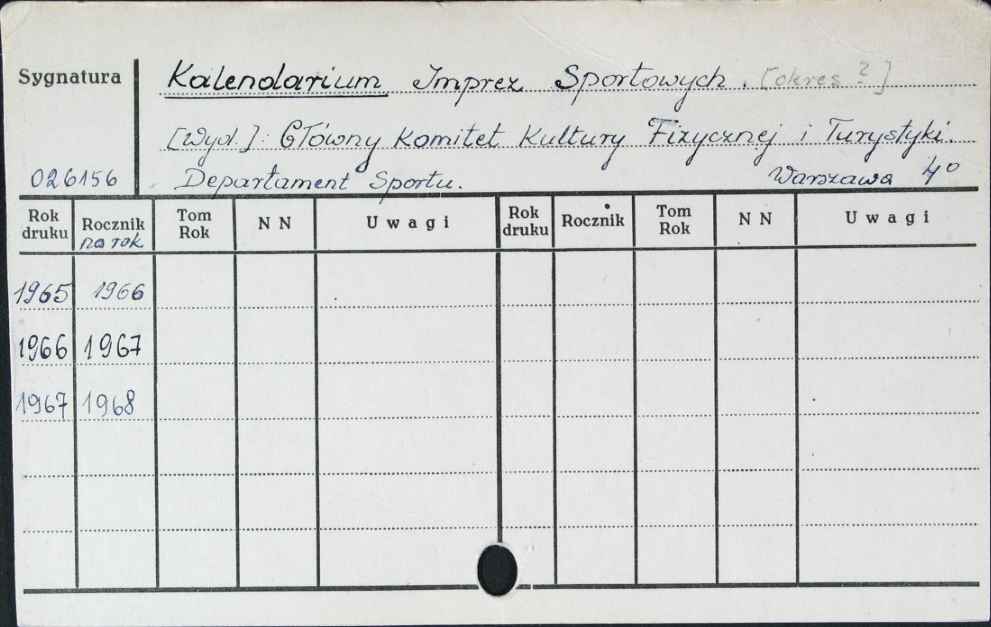 Sygnatura
Kalendarium Imprez Sportowych. [okres ?]
[Wyd.]: Główny Komitet Kultury Fizycznej i Turystyki.
026156 Departament Sportu. Warszawa 4°
Rok druku Rocznik na rok Tom Rok NN Uwagi Rok druku Rocznik Tom Rok NN Uwagi
1965 1966
1966 1967
1967 1968